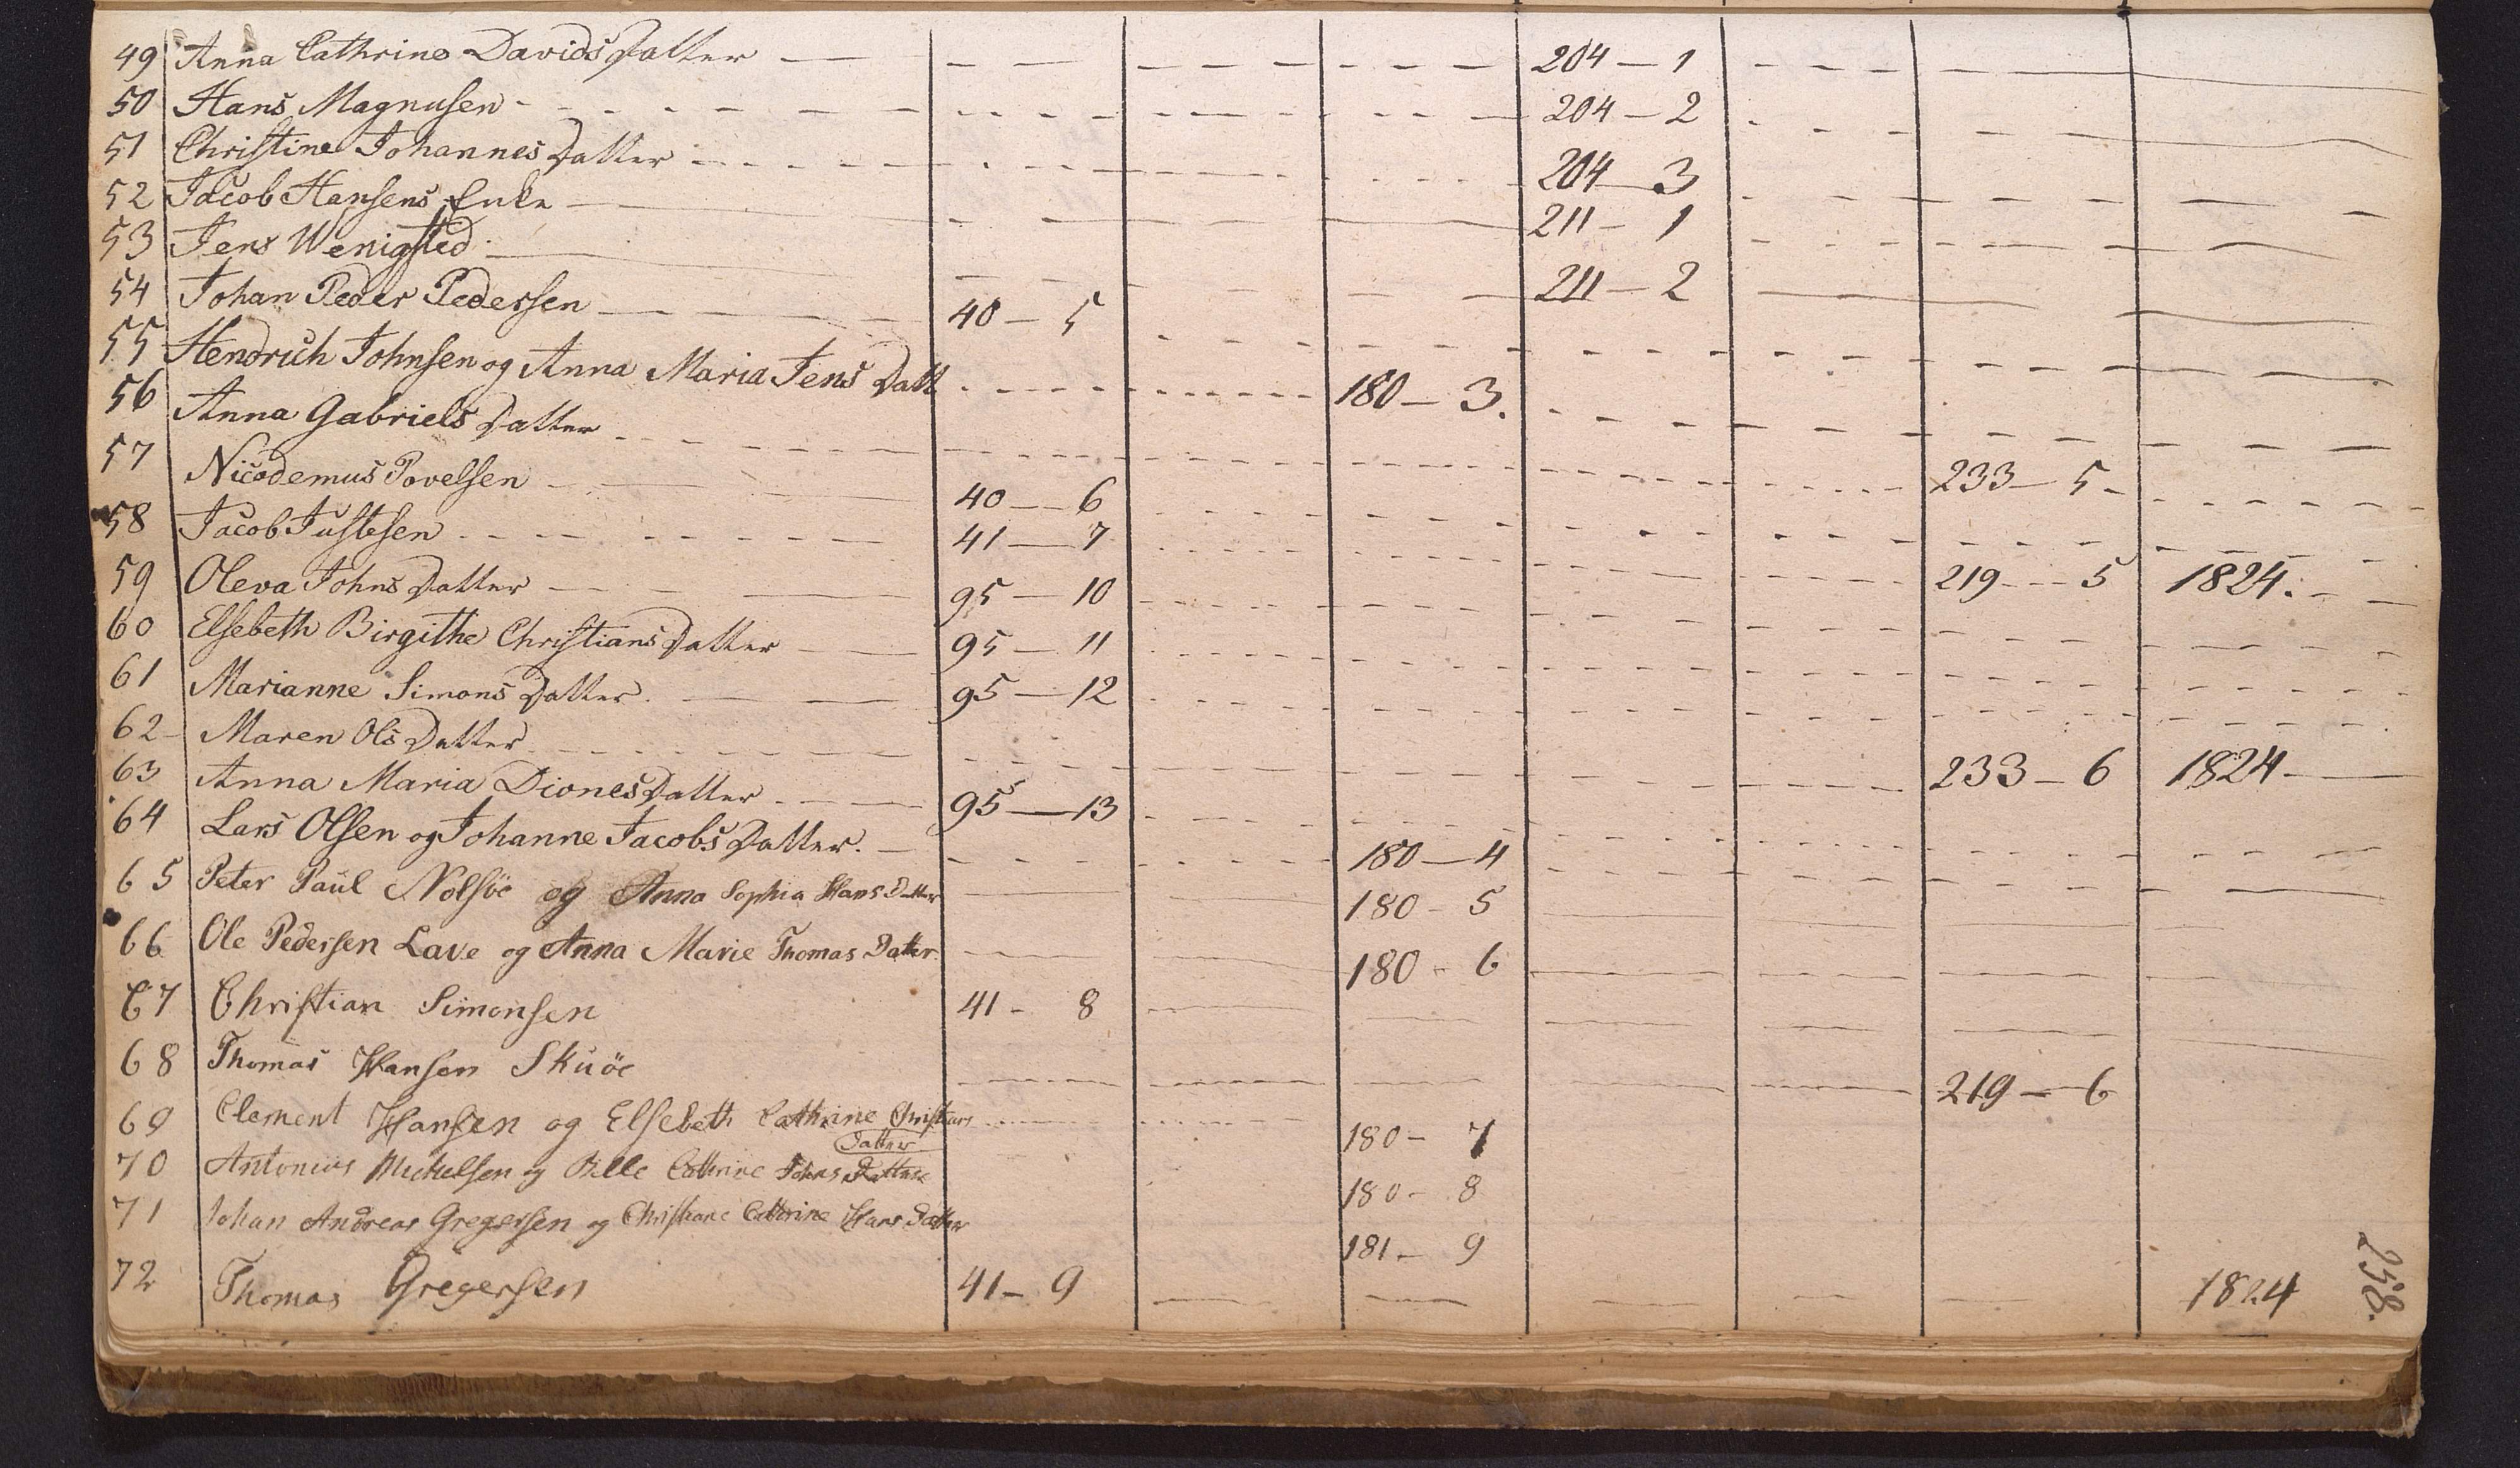 49 Anna Cathrine Davids Datter — — — — — — — — — 204 — 1 — — — — —
50 Hans Magnusen - - - - - - - - - - - 204 — 2 - - - - -
51 Christine Johannes Datter - - - - - - - - - - 204 — 3 - - - - -
52 Jacob Hansens Enke — — — — — 211 — 1 - - - - -
53 Jens Wenigsted — — — — — 211 — 2 — — —
54 Johan Peder Pedersen — — — 40 — 5 - - - - - - - -
55 Hendrich Johnsen og Anna Maria Jens Datt - - - - - - 180 — 3. - - - - - -
56 Anna Gabriels Datter - - - - - - - - - - 233 — 5 - - - - -
57 Nicodemus Povelsen — — — 40 — 6 - - - - - - - -
58 Jacob Justesen - - - - - - 41 — 7 - - - - - - 219 - - 5 1824. - -
59 Oleva Johns Datter — — — 95 — 10 - - - - - - - -
60 Elsebeth Birgithe Christians Datter — — 95 — 11 - - - - - - - -
61 Marianne Simons Datter. — — 95 — 12 - - - - - - - -
62 - Maren Ols Datter - - - - - - - - - - 233 — 6 1824 - —
63 Anna Maria Diones Datter - - — 95 — 13 - - - - - - - -
64 Lars Olsen og Johanne Jacobs Datter. — - - - - - - 180 — 4 - - - - - -
65 Peter Paul Nolsöe og Anna Sophia Hans Datter — — 180 - 5 — — — —
66 Ole Pedersen Lave og Anna Marie Thomas Datter — — 180 - 6 — — — —
67 Christian Simonsen 41 - 8 — — — — — —
68 Thomas Hansen Skuöe — — — — — 219 — 6
69 Clement Hansen og Elsebeth Cathrine Christians - - - - 180 - 7
Datter
70 Antonius Michelsen og Bille Cathrine Johns Datter 180 - 8
71 Johan Andreas Gregersen og Christiane Cathrine Hans Datter 181 - 9
72 Thomas Gregersen 41 - 9 — — — — — 1824
258.